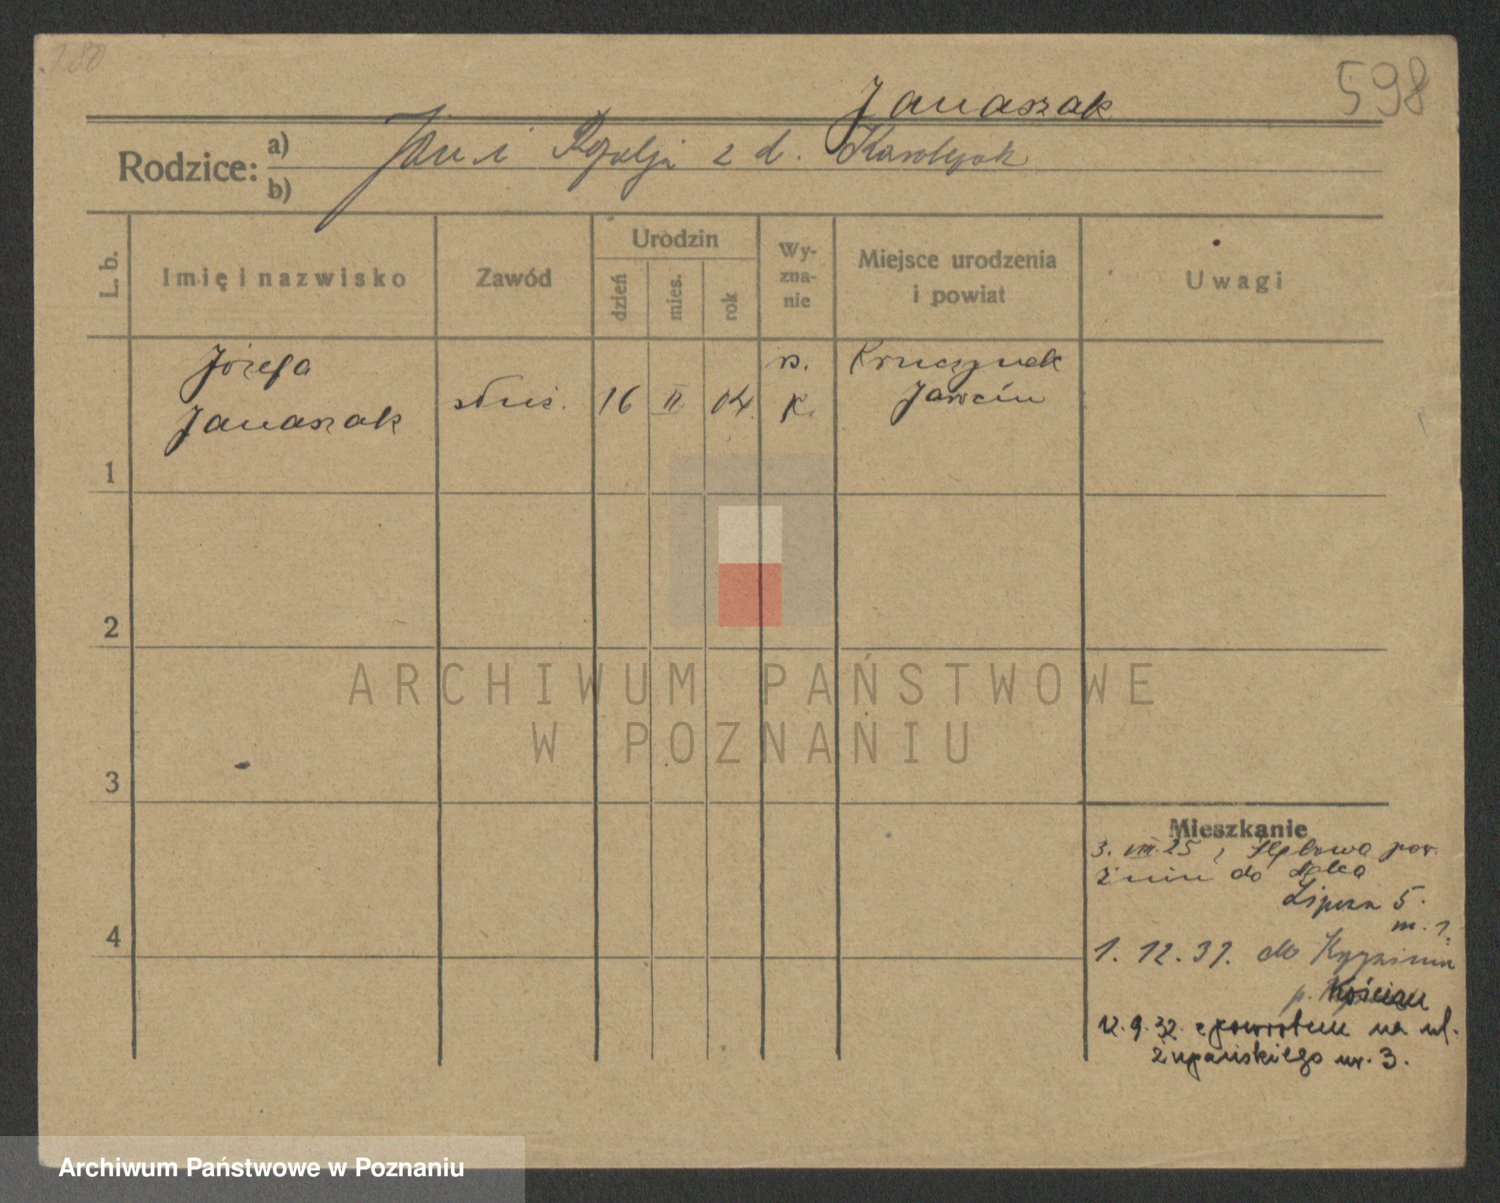 180
598
Janaszak
Rodzice: a) Jan i Rozalja z d.
b)
L. b.
Imię i nazwisko
Zawód
Urodzin
dzień
mies.
rok
Wy-
zna-
nie
Miejsce urodzenia
i powiat
Uwagi
Józefa
Janaszak
służ.
16 II 04.
rz.
k.
Kruczynek
Jarocin
1
2
3
4
ARCHIWUM PAŃSTWOWE
W POZNANIU
Mieszkanie
3. VIII. 25 z pow.
Żnin do
5.
m. 1.
1. 12. 31. do
p. Kościan
12. 9. 32. z powrotem na ul.
Żupańskiego nr. 3.
Archiwum Państwowe w Poznaniu